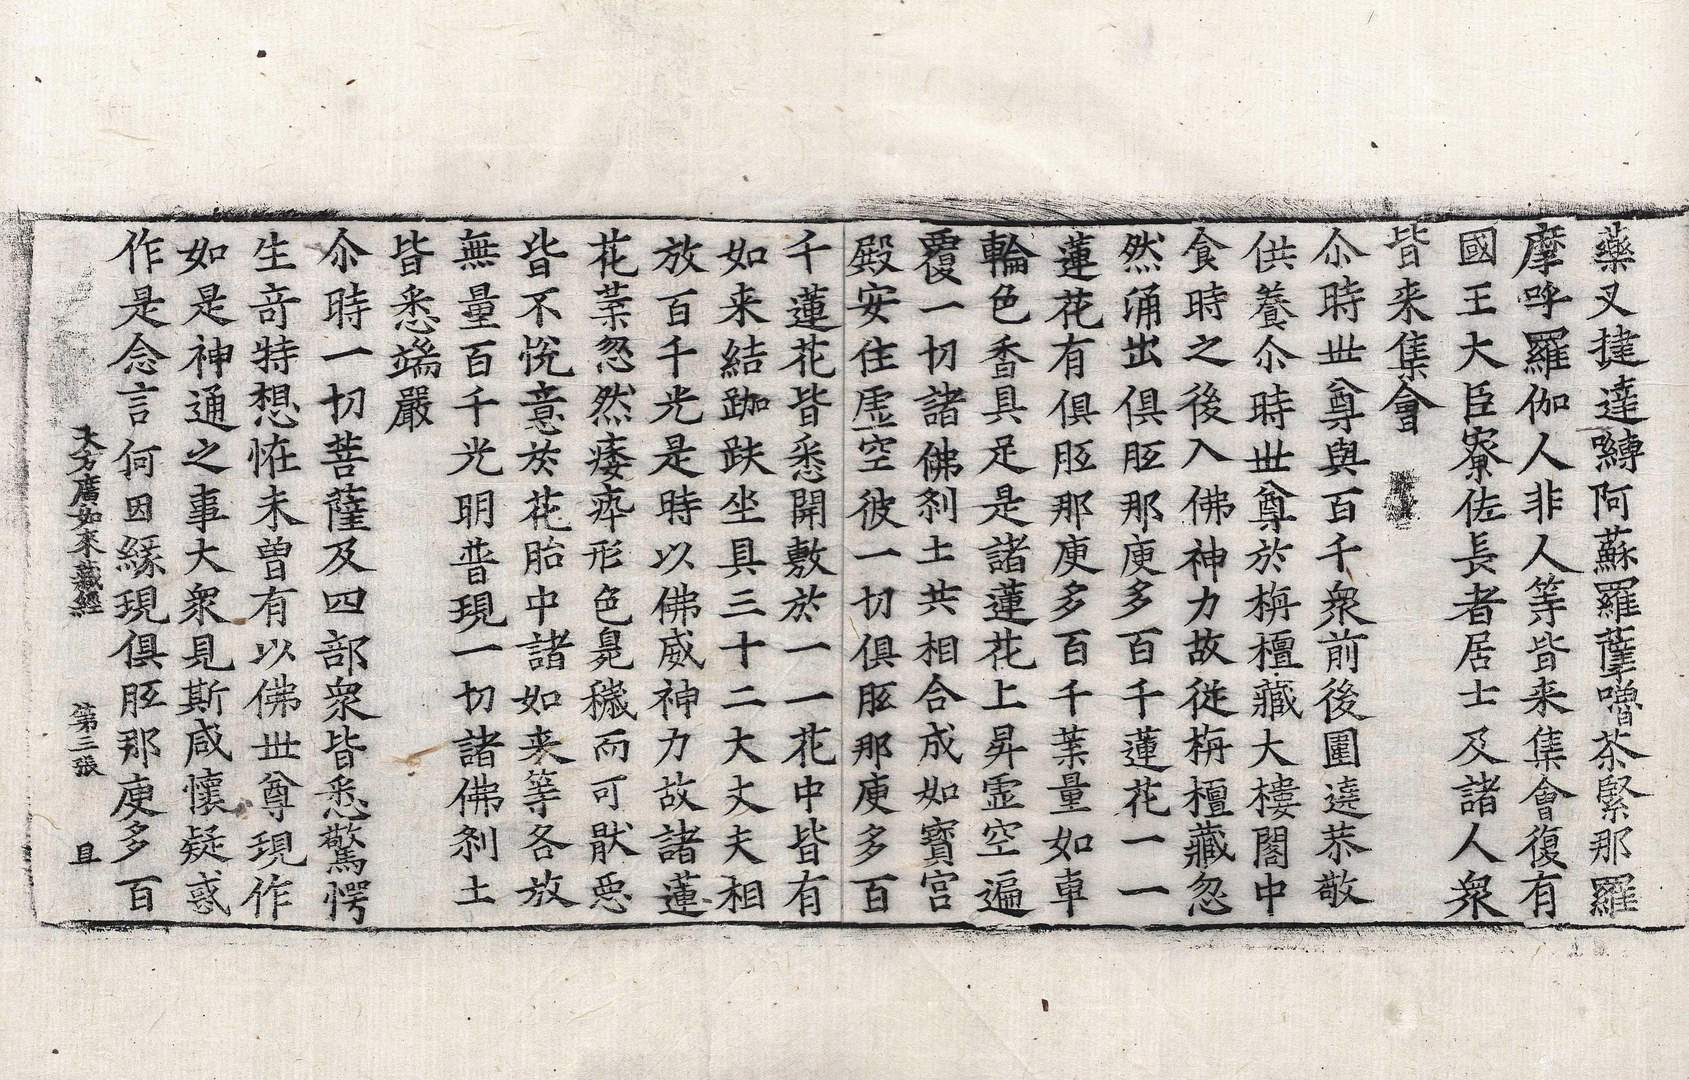 藥叉揵達嚩阿蘇羅蘖嚕荼緊那羅
摩呼羅伽人非人等皆来集會復有
國王大臣寮佐長者居士及諸人衆
皆来集會
尒時世尊與百千衆前後圍遶恭敬
供養尒時世尊於栴檀藏大樓閣中
食時之後入佛神力故從栴檀藏忽
然涌出俱胝那庾多百千蓮花一一
蓮花有俱胝那庾多百千葉量如車
輪色香具足是諸蓮花上昇虛空遍
覆一切諸佛刹土共相合成如寶宮
殿安住虛空彼一切俱胝那庾多百
千蓮花皆悉開敷於一一花中皆有
如来結跏趺坐具三十二大丈夫相
放百千光是時以佛威神力故諸蓮
花葉忽然痿瘁形色臰穢而可猒惡
皆不悅意於花胎中諸如来等各放
無量百千光明普現一切諸佛刹土
皆悉端嚴
尒時一切菩薩及四部衆皆悉驚愕
生竒特想恠未曾有以佛世尊現作
如是神通之事大衆見斯咸懷疑惑
作是念言何因緣現俱胝那庾多百
大方廣如来藏經　第三張　且